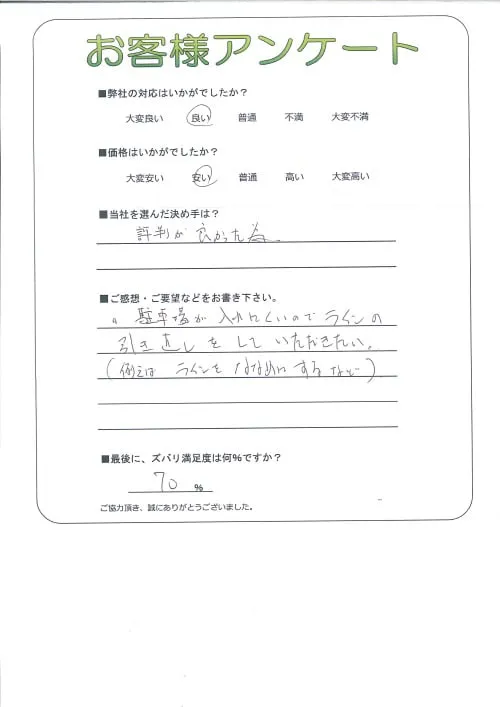 お客様アンケート
■弊社の対応はいかがでしたか？
大変良い 良い 普通 不満 大変不満
■価格はいかがでしたか？
大変安い 安い 普通 高い 大変高い
■当社を選んだ決め手は？
評判が良かった為
■ご感想・ご要望などをお書き下さい。
〃 駐車場が入れにくいのでラインの
引き直しをしていただきたい。
(例えば ラインを ななめにするなど)
■最後に、ズバリ満足度は何％ですか？
70 ％
ご協力頂き、誠にありがとうございました。